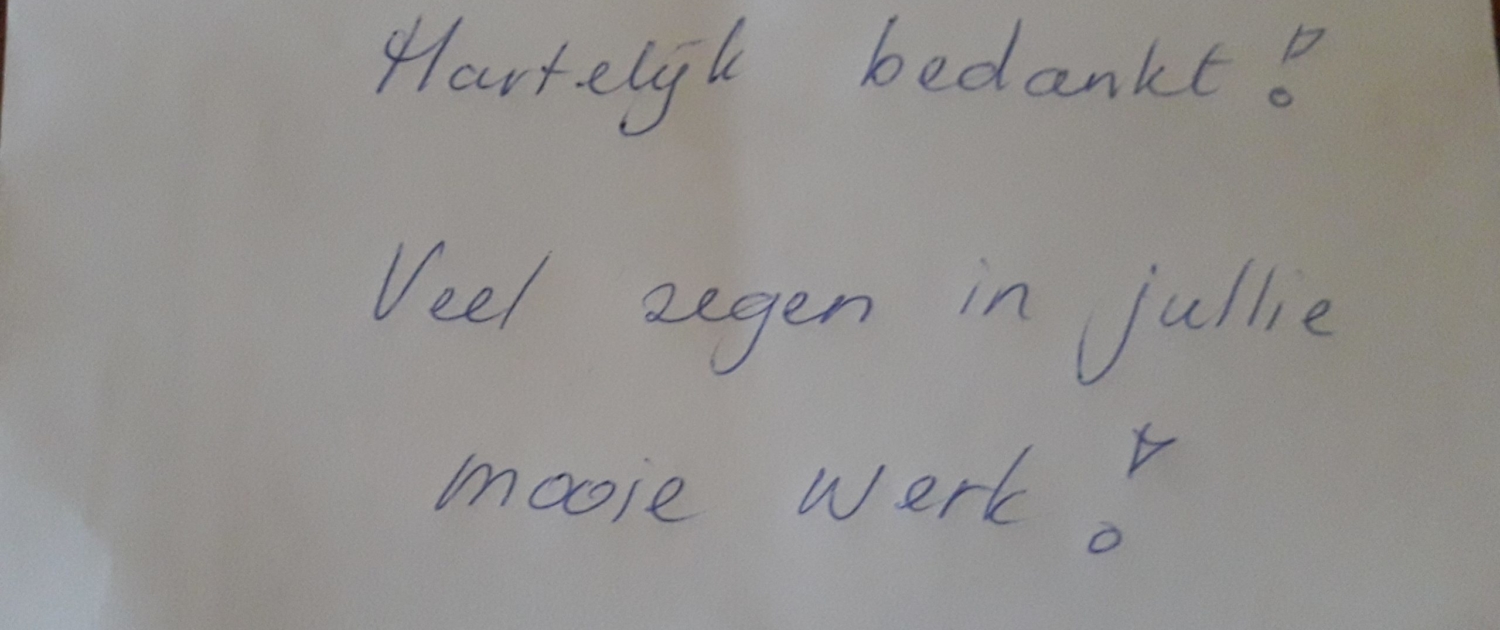 Hartelijk bedankt!
Veel zegen in jullie
mooie werk!